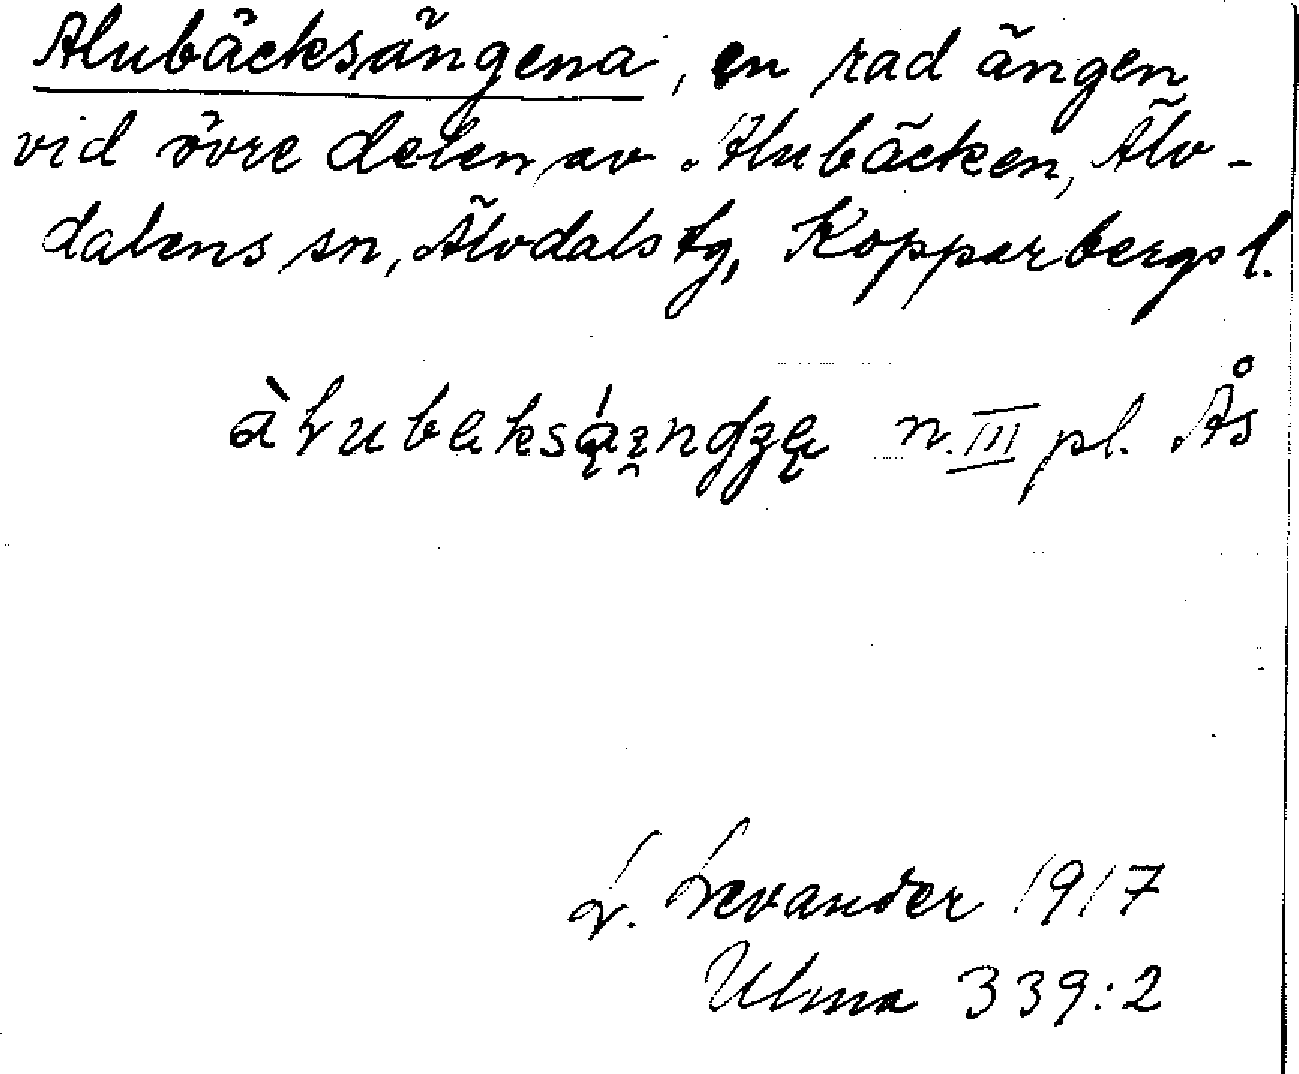 Alubäcksängena, en rad ängen
vid övre delen av Alubäcken, Älv-
dalens sn, Älvdals tg, Kopparbergs l.
n. III pl. Ås
L. Levander 1917
Ulma 339:2